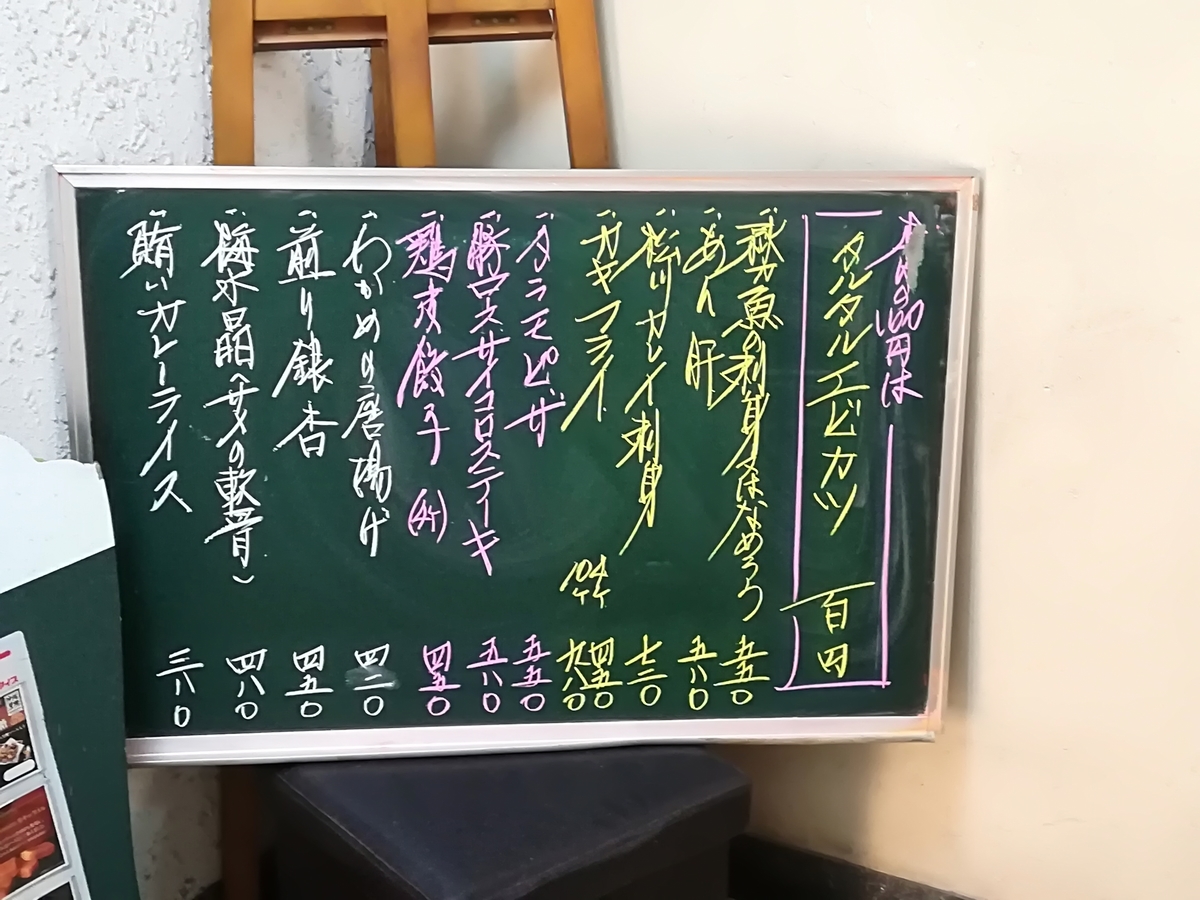 本日の100円は
タルタルエビカツ 百円
秋刀魚の刺身又はなめろう 五五〇
あん肝 五八〇
松川カレイ刺身 七三〇
カキフライ 4ケ 四五〇
10ケ 九八〇
タラモピザ 五五〇
豚ロースサイコロステーキ 五八〇
鶏皮餃子(4ケ) 四五〇
わかめの唐揚げ 四二〇
煎り銀杏 四五〇
梅水晶(サメの軟骨) 四八〇
賄いカレーライス 三八〇